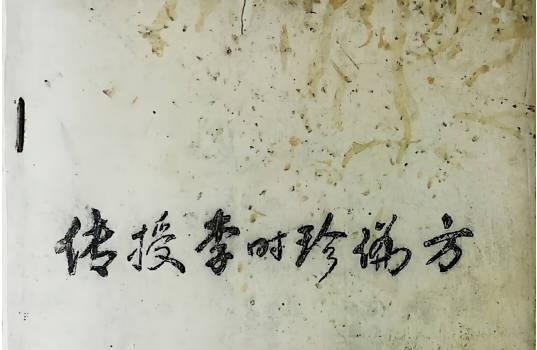 传授李时珍偏方